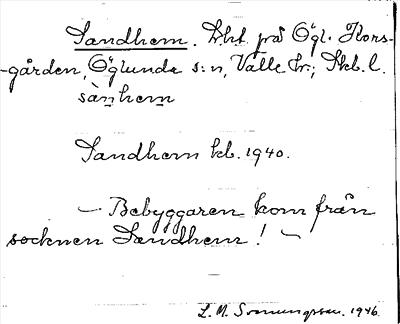 Sandhem. Lht på Ögl. Kors-
-gården, Öglunda s:n, Valle hr; Skb. l.
sànhem
Sandhem kb. 1940.
— Bebyggaren kom från
socknen Sandhem! —
L. M. 1946.